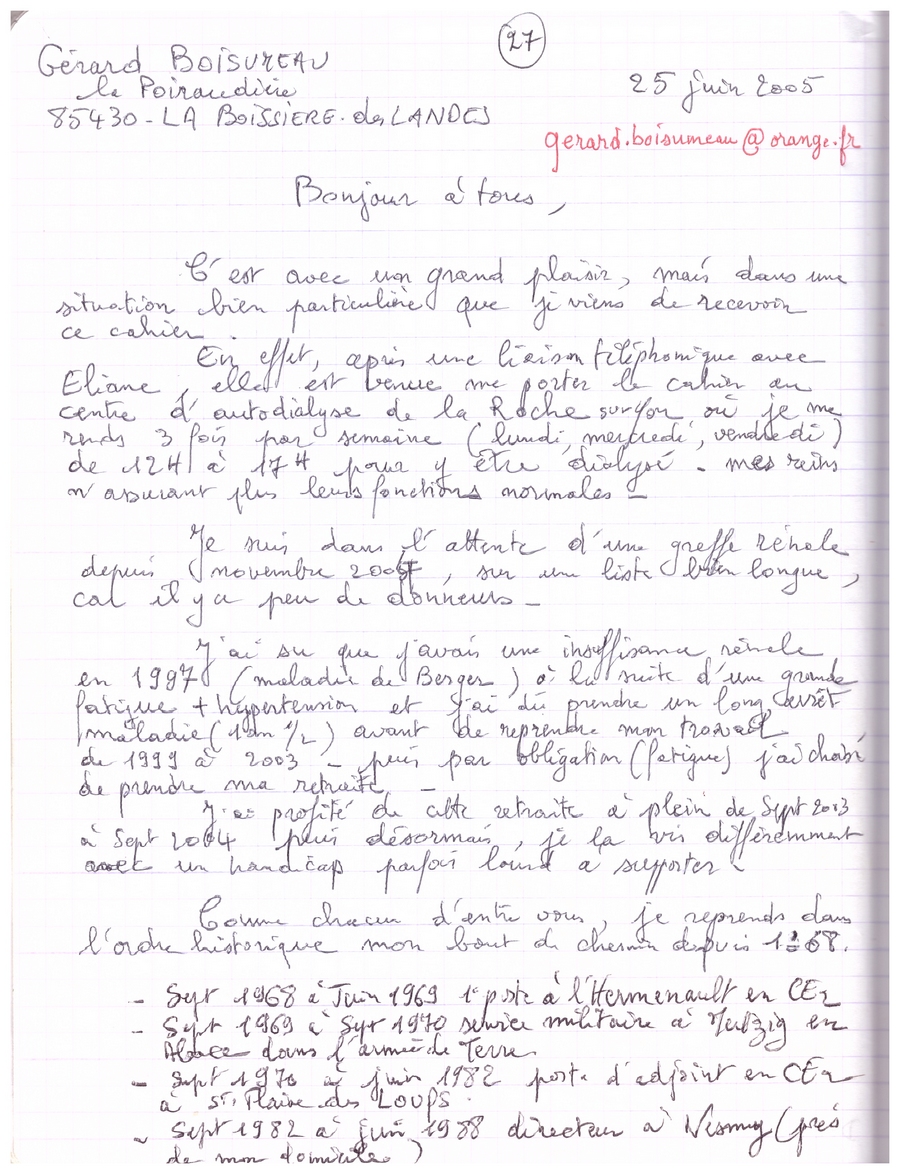 27
Gérard BOISUMEAU
la Poiraudière
85430 - LA BOISSIERE. des LANDES
25 juin 2005
gerard.boisumeau@orange.fr
Bonjour à tous,
C'est avec un grand plaisir, mais dans une
situation bien particulière que je viens de recevoir
ce cahier.
En effet, après une liaison téléphonique avec
Eliane, elle est venue me porter le cahier au
centre d'autodialyse de la Roche sur Yon où je me
rends 3 fois par semaine (lundi, mercredi, vendredi)
de 12H à 17H pour y être dialysé - mes reins
n'assurant plus leurs fonctions normales -
Je suis dans l'attente d'une greffe rénale
depuis novembre , sur une liste bien longue,
car il y a peu de donneurs -
J'ai su que j'avais une insuffisance rénale
en 1997 (maladie de Berger) à la suite d'une grande
fatigue + hypertension et j'ai dû prendre un long arrêt
maladie (1 an 1/2) avant de reprendre mon travail
de 1999 à 2003 - puis par obligation (fatigue) j'ai choisi
de prendre ma retraite -
J'ai profité de cette retraite à plein de Sept 2003
à Sept 2004 puis désormais, je la vis différemment
avec un handicap parfois lourd à supporter -
Comme chacun d'entre vous, je reprends dans
l'ordre historique mon bout de chemin depuis 1968.
- Sept 1968 à Juin 1969 1° poste à l'Hermenault en CE2
- Sept 1969 à Sept 1970 service militaire à Mutzig en
Alsace dans l'armée de Terre
- Sept 1970 à juin 1982 poste d'adjoint en CE2
à St. Flaive des LOUPS.
- Sept 1982 à juin 1988 directeur à Nesmy (près
de mon domicile)